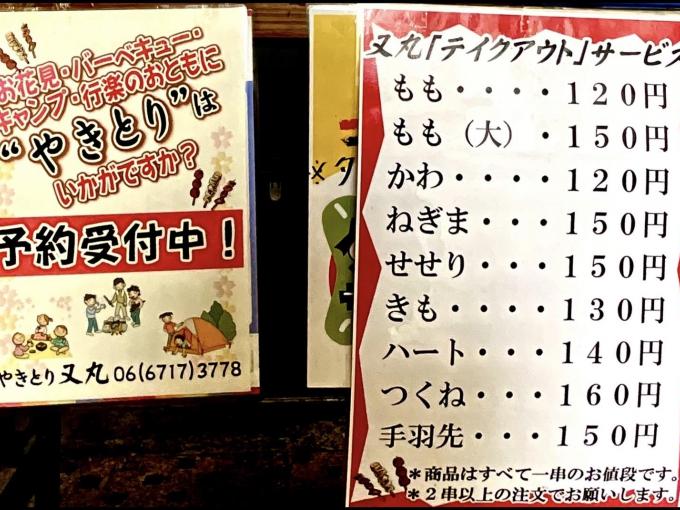 お花見・バーベキュー・
キャンプ・行楽のおともに
“やきとり”は
いかがですか？
予約受付中！
やきとり 又丸 06(6717)3778
又丸「テイクアウト」サービス
もも・・・・１２０円
もも（大）・１５０円
かわ・・・・１２０円
ねぎま・・・１５０円
せせり・・・１５０円
きも・・・・１３０円
ハート・・・１４０円
つくね・・・１６０円
手羽先・・・１５０円
＊商品はすべて一串のお値段です。
＊２串以上の注文でお願いします。